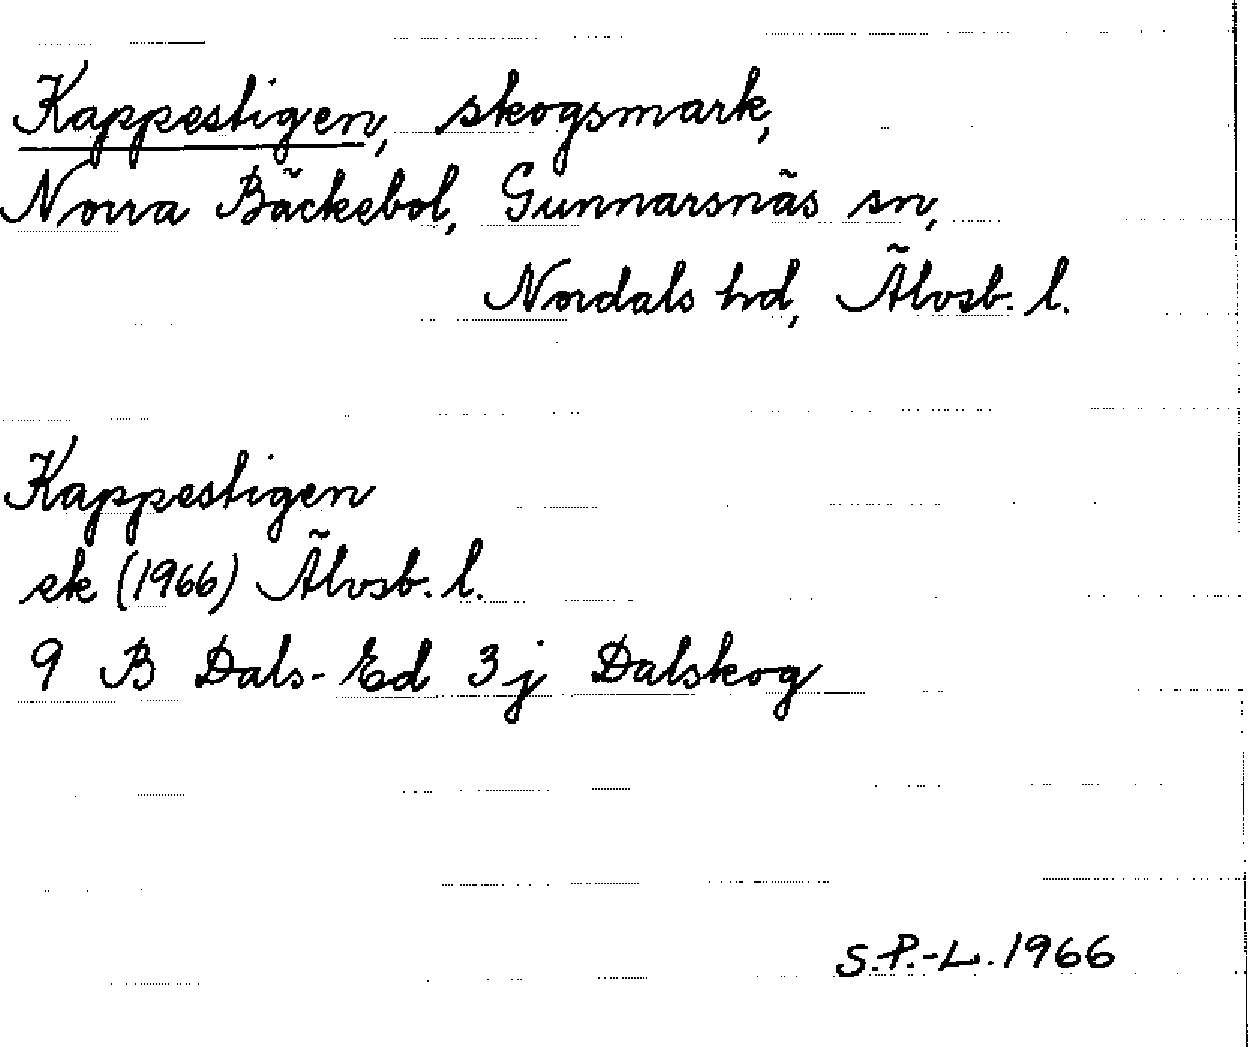 Kappestigen, skogsmark,
Norra Bäckebol, Gunnarsnäs sn,
Nordals hd, Älvsb. l.
Kappestigen
ek (1966) Älvsb. l.
9 B Dals-Ed 3j Dalskog
S.P.-L. 1966